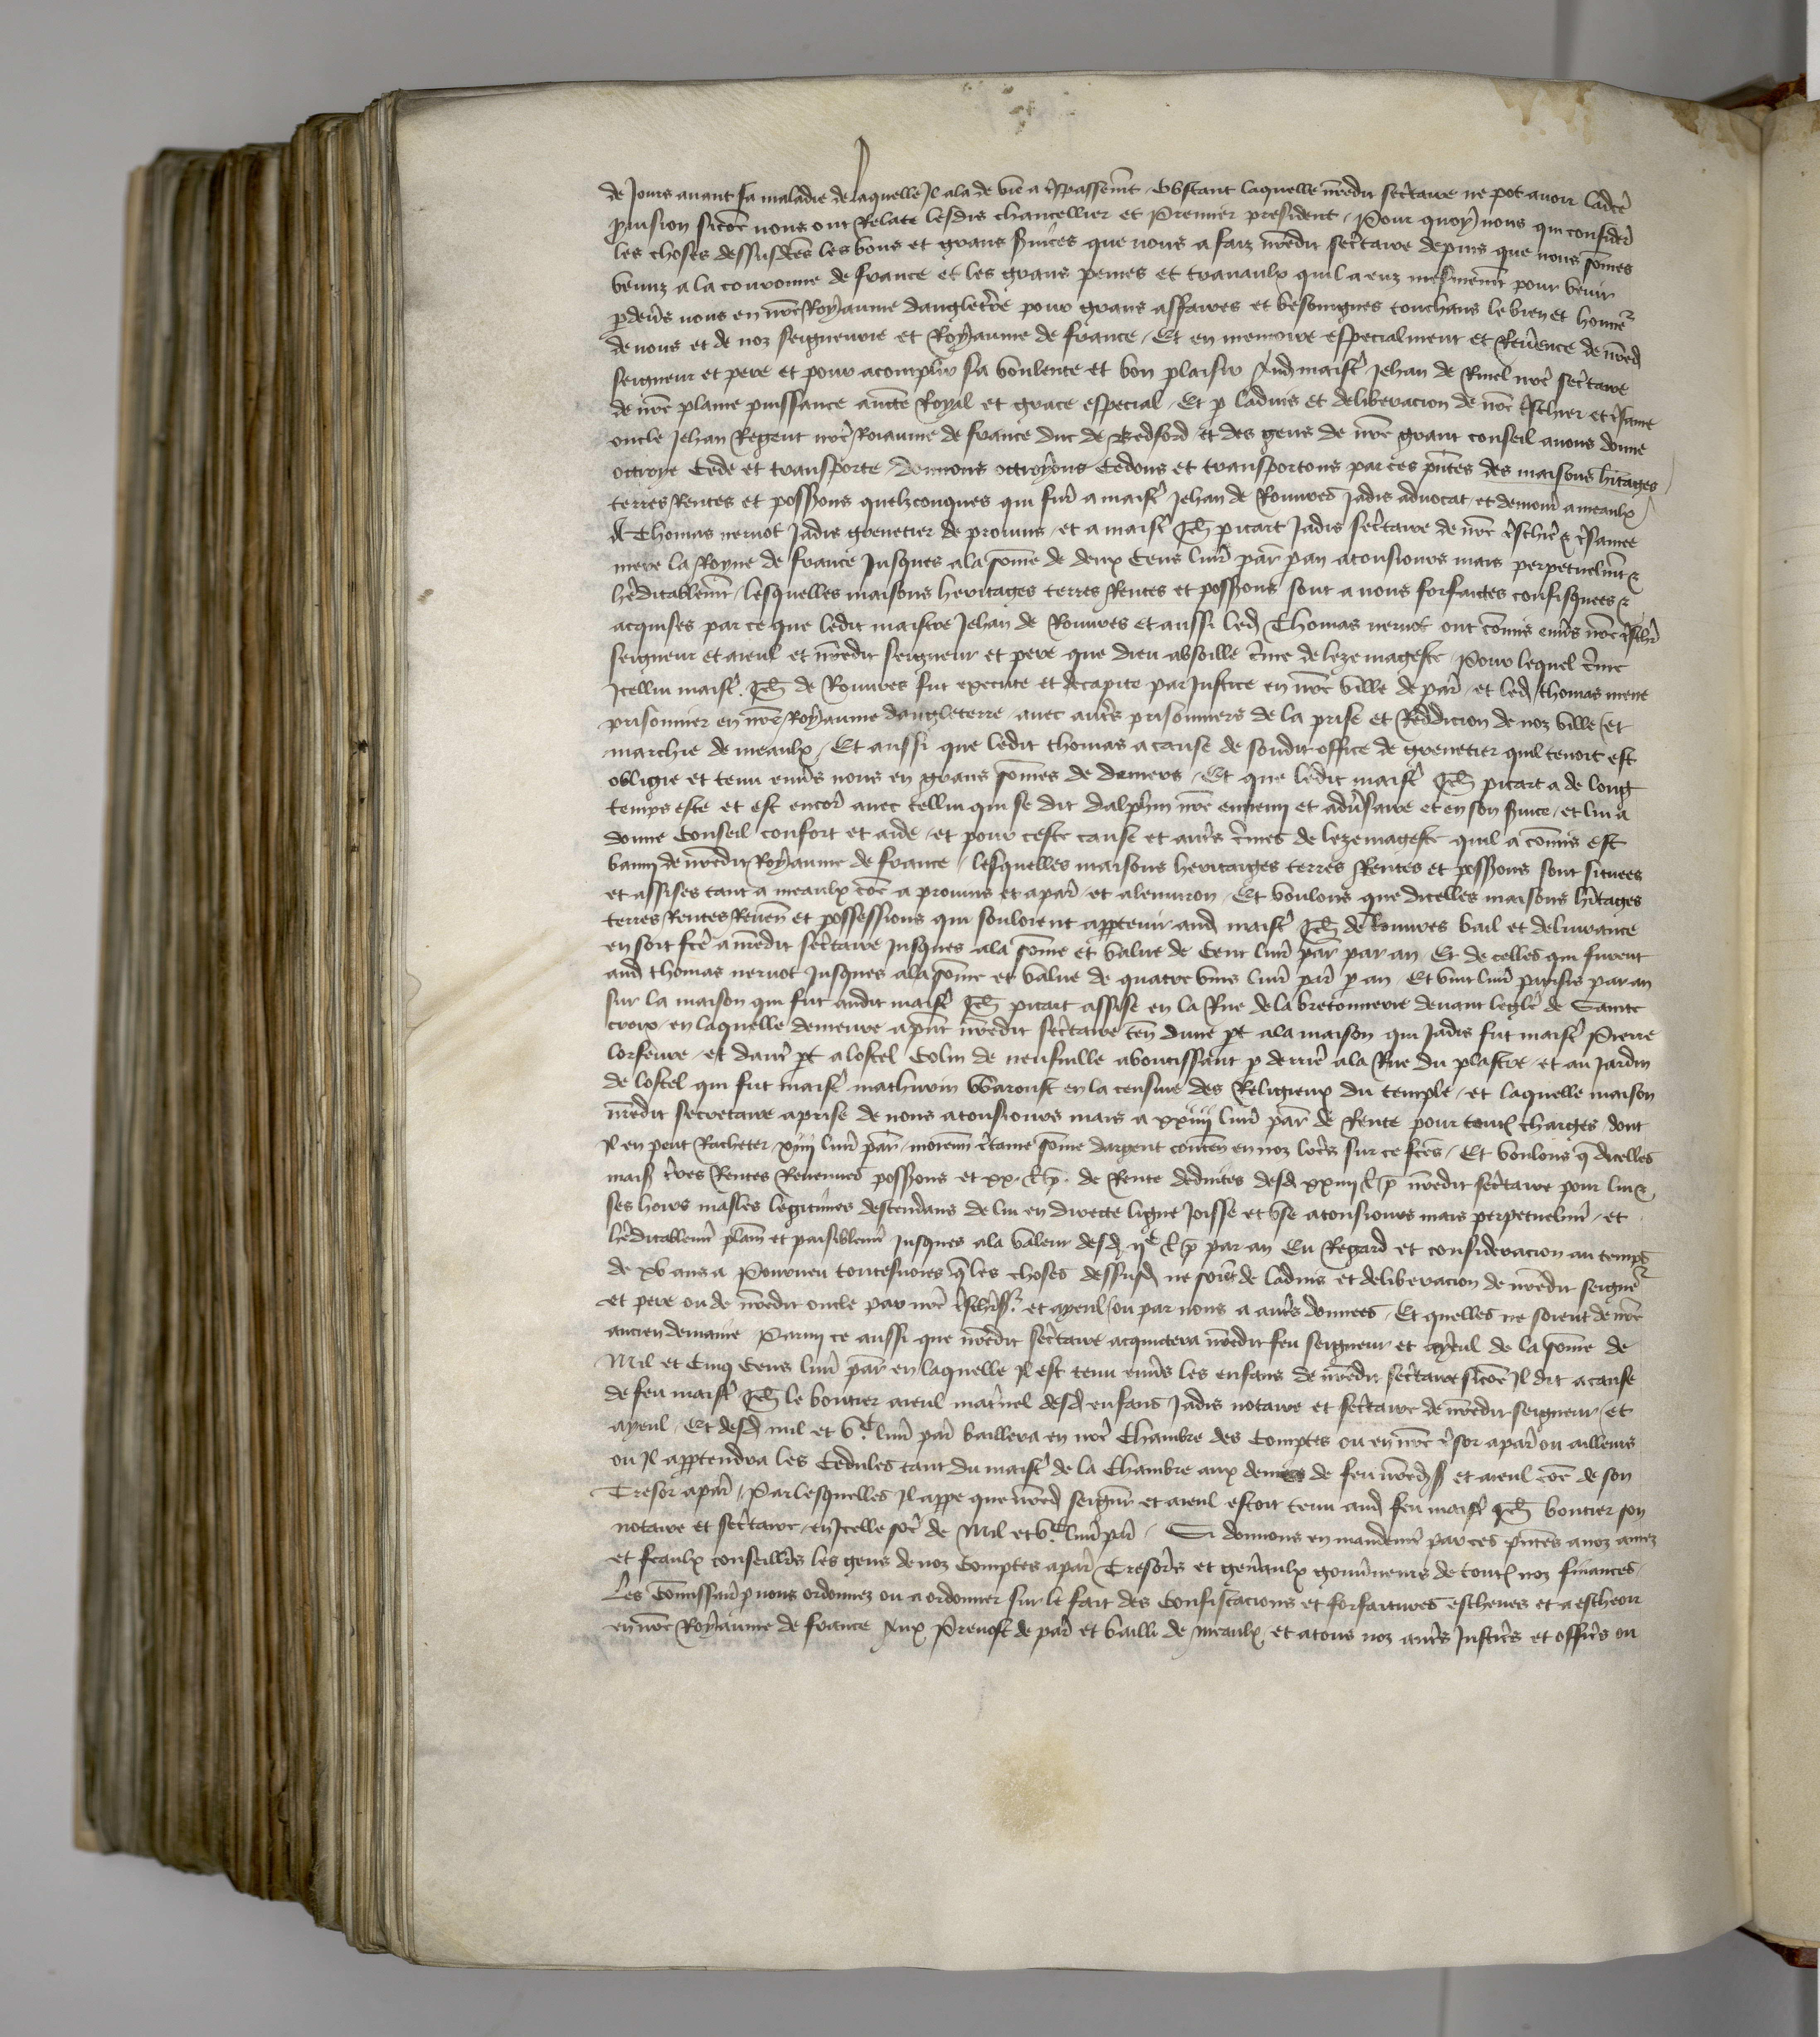 de jours avant sa maladie de laquelle il ala de vie a trespassemt obstant laquelle nredit secretaire ne pot avoir ladce
pvision sicoe nous ont Relate lesdis chancellier et Premier president / Pour quoy nous qui consider
les choses dessusdces les bons et grans svices que nous a faiz nredit secretaire depuis que nous somes
venuz a la couronne de france et les grans peines et travaulx quil a euz mesmemt pour venir
pdevs nous en nre Royaume dangleterre pour grans affaires et besoingnes touchans le bien et honner
de nous et de noz seigneurie et Royaume de france / Et en memoire especialment et Revence de nred
seigneur et pere et pour acomplir sa voulente et bon plaisir Aud maist Jehan de Rinel nre sectaire
de nre plaine puissance aucte Royal et grace especial / Et p ladvis et deliberacion de nre tschier et tsame
oncle Jehan Regent nre Roiaume de france duc de Bedford et des gens de nre grant conseil avons donne
octroye Cede et transporte donnons octroyons Cedons et transportons par ces pntes des maisons hitages
terres Rentes et possions quelzconques qui fur a maist Jehan de Rouvres jadis advocat et demour a meaulx
A Thomas nervot jadis grenetier de provins / et a maist Jeh picart jadis sectaire de nre tschie & tsamee
mere la Royne de france Jusques ala some de deux Cens livr par pan atousiours mais perpetuelmt &
heditablemt / lesquelles maisons heritages terres Rentes et possions sont a nous forfaites confisquees &
acquises par ce que ledit maistre Jehan de Rouvres et aussi led Thomas nervot ont comis envs nre tschr
seigneur et aieul et nredit seigneur et pere que dieu absoille cme de leze mageste / Pour lequel cme
Icellui maist Jeh de Rouvres fut execute et decapite par Justice en nre ville de par / et led thomas mene
prisonnier en nre Royaume dangleterre / avec autres prisonniers de la prise et Reddicion de noz ville et
marchie de meaulx / Et aussi que ledit thomas a cause de sondit office de grenetier quil tenoit est
obligie et tenu envs nous en grans somes de deniers / Et que ledit maist Jeh picart a de long
temps este et est encor avec cellui qui se dit dalphin nre ennemi et advsaire et en son svice / et lui a
donne Conseil confort et aide / et pour ceste cause et autrs cmes de leze mageste quil a comis est
banni de nredit Royaume de france / lesquelles maisons heritaiges terres Rentes et possions sont situees
et assises tant a meaulx coe a provins et a par et alenviron / Et voulons que dicelles maisons hitages
terres Rentes Reven et possessions qui souloient apptenir aud maist Jeh de Rouvres bail et delivrance
en soit fce a nredit sectaire jusques ala some et value de Cent livr par par an / Et de celles qui furent
aud thomas nervot Jusques ala some et value de quatre vins livr par p an Et vint livr parisis par an
sur la maison qui fut audit maist Jeh picart assise en la Rue de la bretonnerie devant legle de Sainte
croix / en laquelle demeure apnt nredit sectaire ten dune pt ala maison qui jadis fut maist Pierre
lorfevre / et dautr pt a lostel Colin de neufville aboutissant p derrie ala Rue du plastre / et au jardin
de lostel qui fut maist mathurin Waroust en la censive des Religieux du temple / et laquelle maison
nredit secretaire a prise de nous atousiours mais a xxiiii livr par de Rente pour toutes charges dont
il en peut Racheter xiiii livr par / moienn ctaine some dargent conten en noz lectrs sur ce fces / Et voulons q dicelles
mais tres Rentes Revenues possions et xx l p de Rente deduites desd xxiiii l p nredit sectaire pour lui &
ses hoirs masles legitimes descendans de lui en directe ligne joisse et use atousiours mais perpetuelmt et
heditablemt plam et paisiblemt jusques ala valeur desd iic l p par an Eu Regard et consideracion au temps
de xv ans a Pourveu toutesvoies q les choses dessusd ne soiet de ladvis et deliberacion de nredit seigner
et pere ou de nredit oncle par nre tschrs et ayeul ou par nous a autrs donnees / Et quelles ne soient de nre
ancien demaine Parmi ce aussi que nredit sectaire acquictera nredit feu seigneur et ayeul de la some de
Mil et Cinq Cens livr par en laquelle il est tenu envs les enfans de nredit sectaire sicoe il dit a cause
de feu maist Jeh le boutier aieul matnel desd enfans jadis notaire et sectaire de nredit seigneur et
ayeul / Et desd mil et vc livr par baillera en nre Chambre des Comptes ou en nre tsor apar ou ailleurs
ou il apptendra les Cedules tant du maist de la Chambre aux deniers de feu nreds et aieul coe de son
Tresor apar / Par lesquelles il appe que nred seignr et aieul estoit tenu aud feu maist Jeh boutier son
notaire et sectaire / en Icelle soe de Mil et vc livr par / Si donnons en mandemt par ces pntes a noz amez
et feaulx conseillrs les gens de noz Comptes apar Tresorrs et genaulx gouvneurs de toutes noz finances
Les Comissairs p nous ordonnez ou a ordonner sur le fait des Confiscacions et forfaitures escheues et a escheoir
en nre Royaume de france Aux Prevost de par et bailli de meaulx / et a tous noz autrs Justicrs et officrs ou